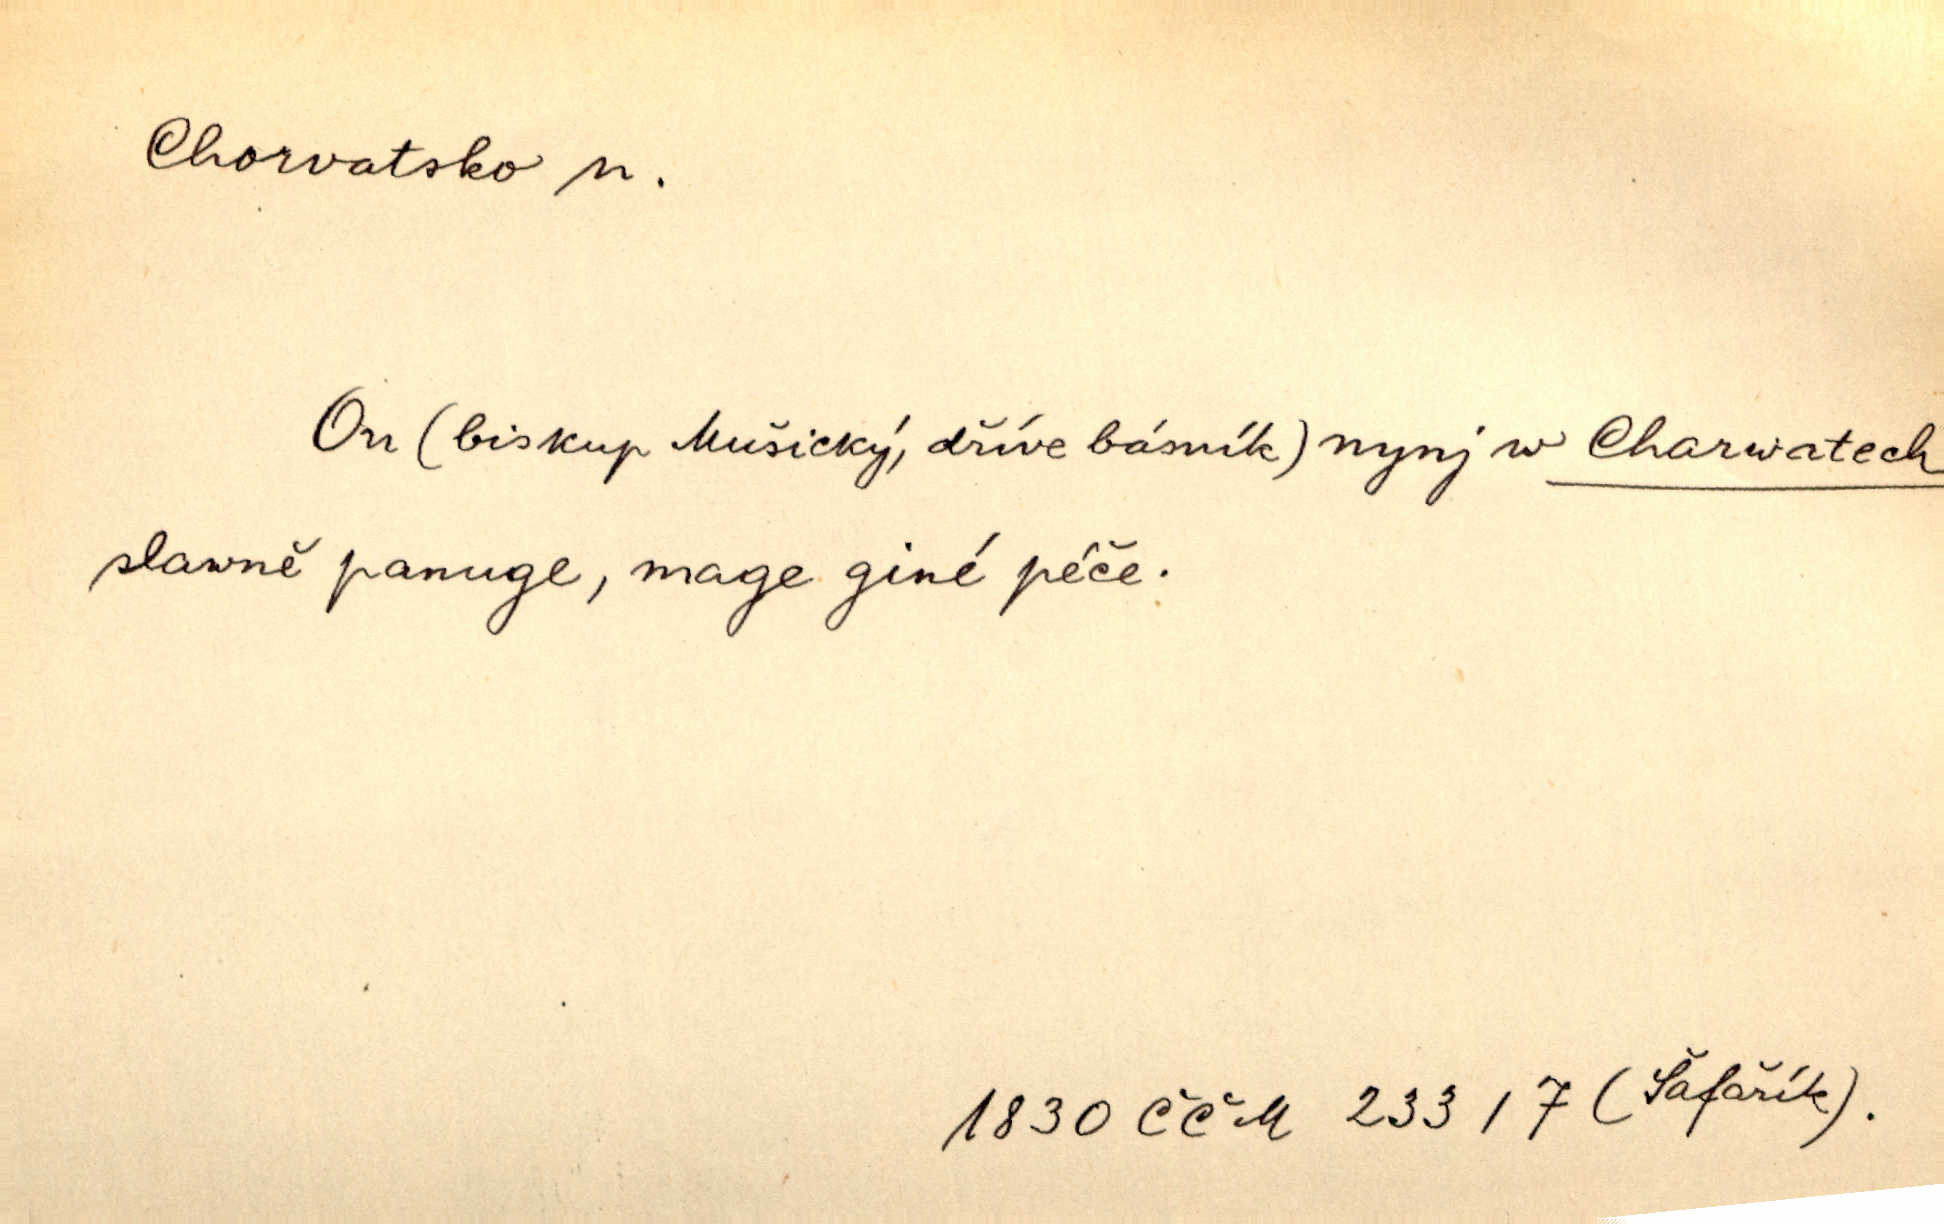 Chorvatsko n.
On (biskup Mušický, dříve básník) nynj w Charwatech
slawně panuge, mage giné péče.
1830 ČČM 233 / 7 (Šafařík).